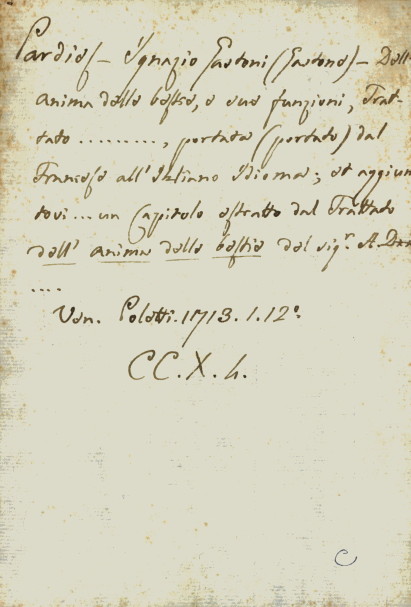 Pardies – Ignazio Gastoni (Gastone) – Dell'
anima delle bestie, e sue funzioni, Trat-
tato ........., portata (portato) dal
Francese all'Italiano Idioma; et aggiun
tovi ... un Capitolo estratto dal Trattato
dell' anima delle bestie del sigr. A.
....
Ven. Poletti. 1713. 1. 12º.
CC. X. h.
C